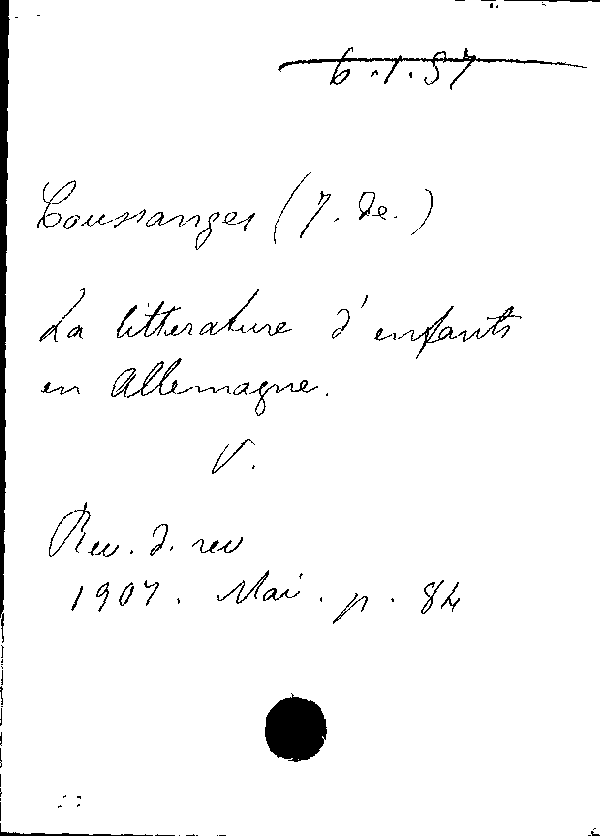 6.1.57
Coussanges (J. de.)
La litterature d'enfants
en Allemagne.
V.
Rev. d. rev
1907. Mai. p. 84